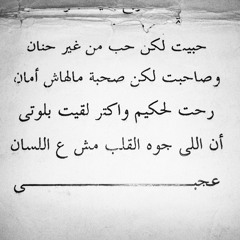 حبيت لكن حب من غير حنان
وصاحبت لكن صحبة مالهاش أمان
رحت لحكيم واكتر لقيت بلوتى
أن اللى جوه القلب مش ع اللسان
عجبى